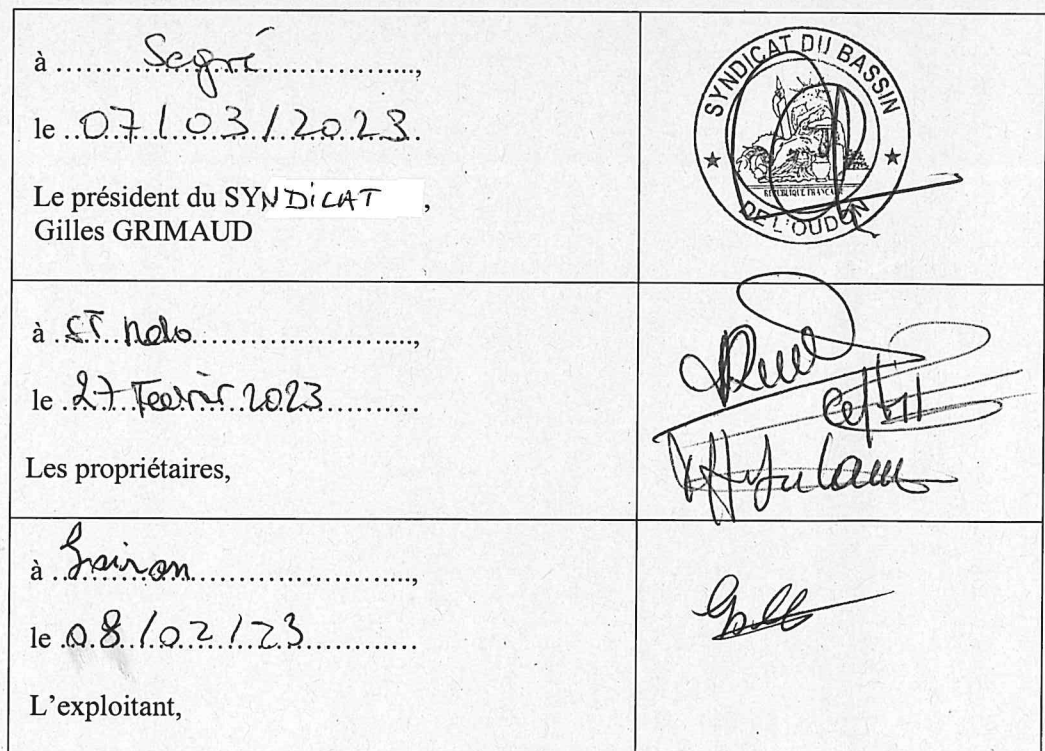 à ........Segré........................,
le ..07/03/2023..
Le président du SYNDICAT ,
Gilles GRIMAUD
SYNDICAT DU BASSIN
DE L'OUDON
RÉPUBLIQUE FRANÇAISE
à .ST.....................,
le .27 Fevrier 2023............
Les propriétaires,
à .......................,
le .08/02/23............
L'exploitant,